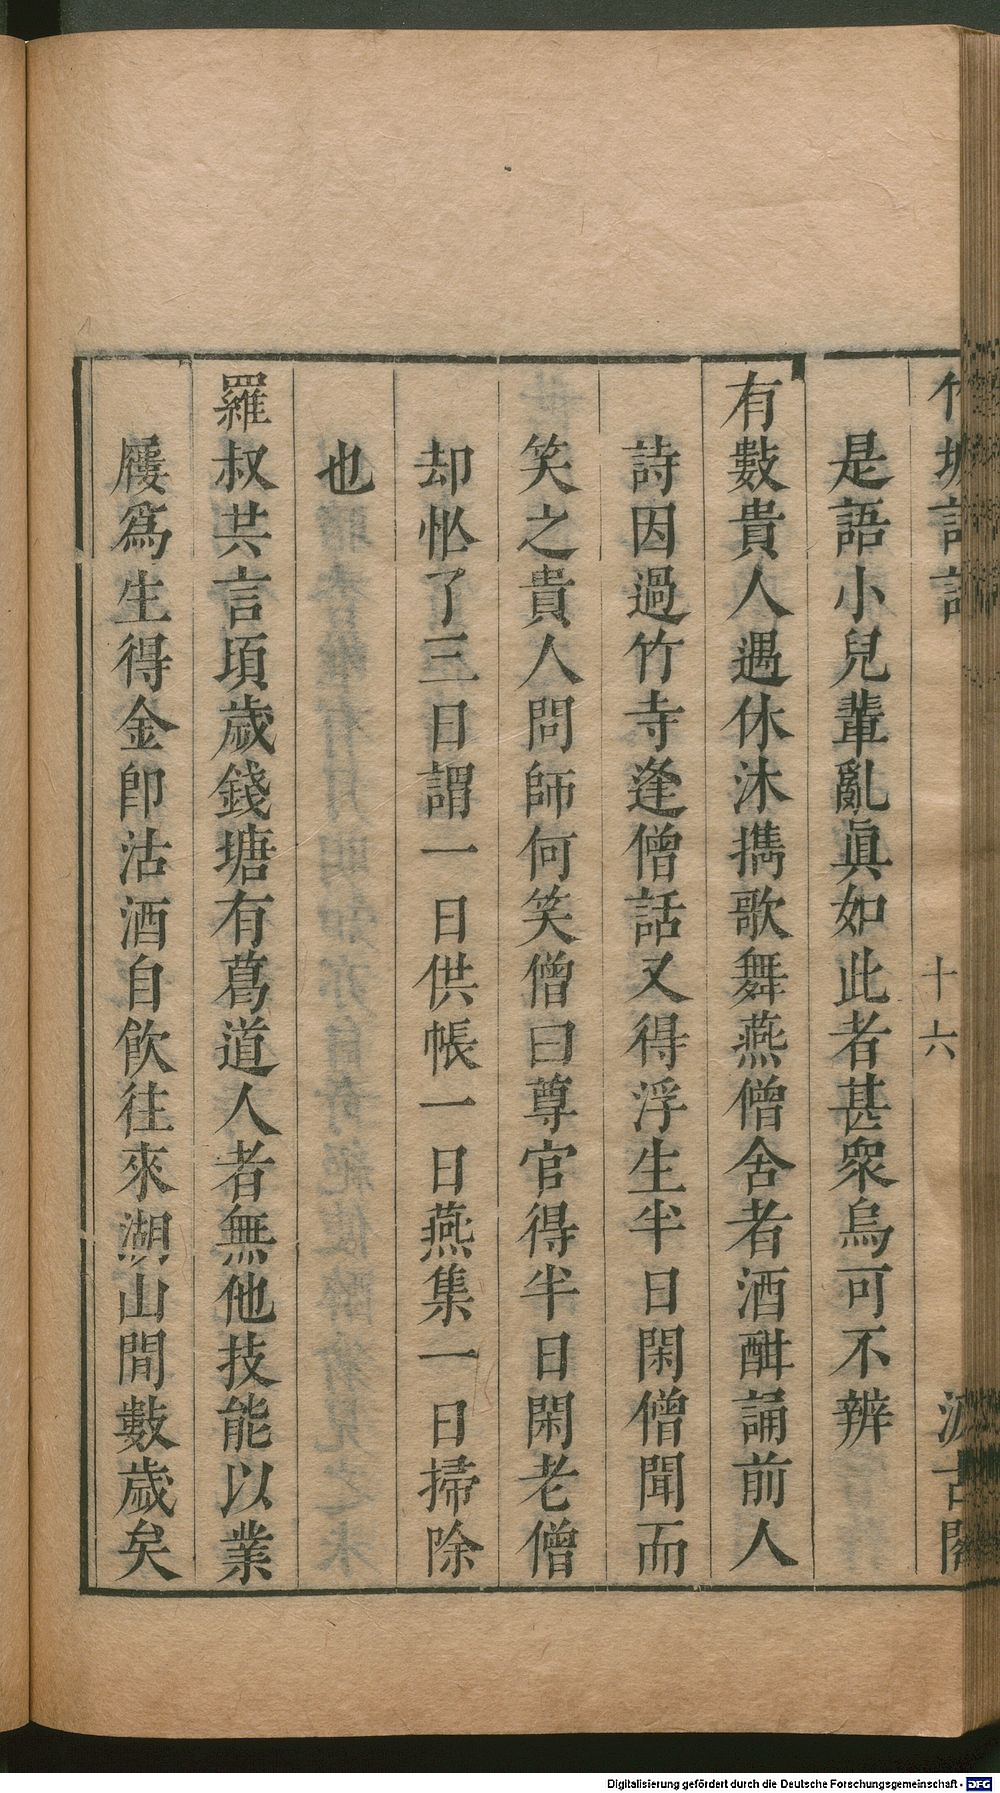 竹坡詩話 十六 汲古閣
是語小兒輩亂眞如此者甚衆烏可不辨
有數貴人遇休沐擕歌舞燕僧舍者酒酣誦前人
詩因過竹寺逢僧話又得浮生半日閑僧聞而
笑之貴人問師何笑僧曰尊官得半日閑老僧
却怭了三日謂一日供帳一日燕集一日掃除
也
羅叔共言頃歲錢塘有葛道人者無他技能以業
屨爲生得金卽沽酒自飲往來湖山間數歲矣
Digitalisierung gefördert durch die Deutsche Forschungsgemeinschaft - DFG